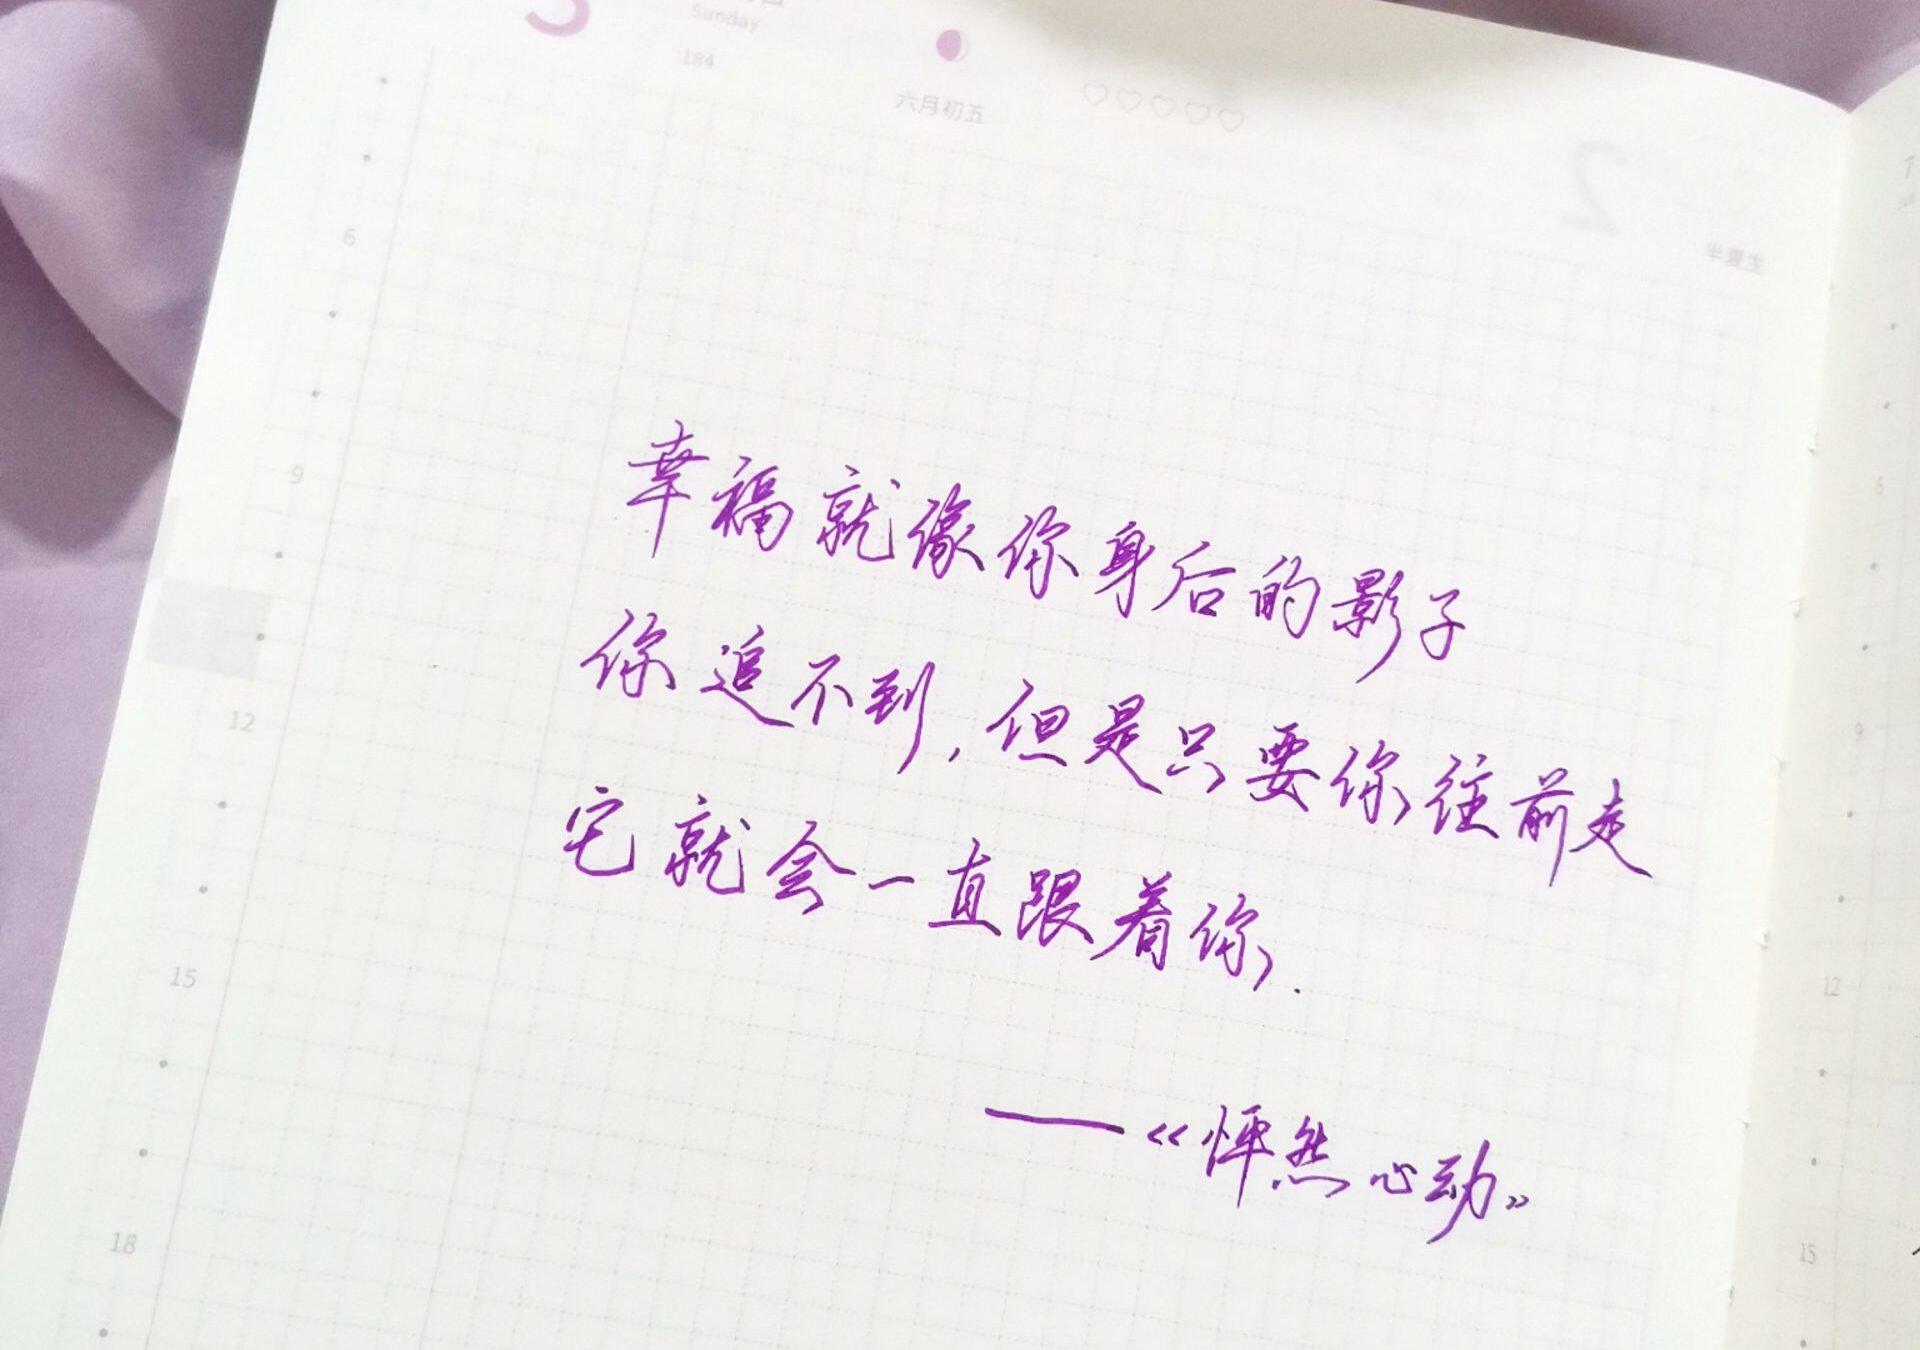 Sunday
184
六月初五
2
半夏生
6
9
12
15
18
幸福就像你身后的影子
你追不到，但是只要你往前走
它就会一直跟着你.
——《怦然心动》
7
6
9
12
15